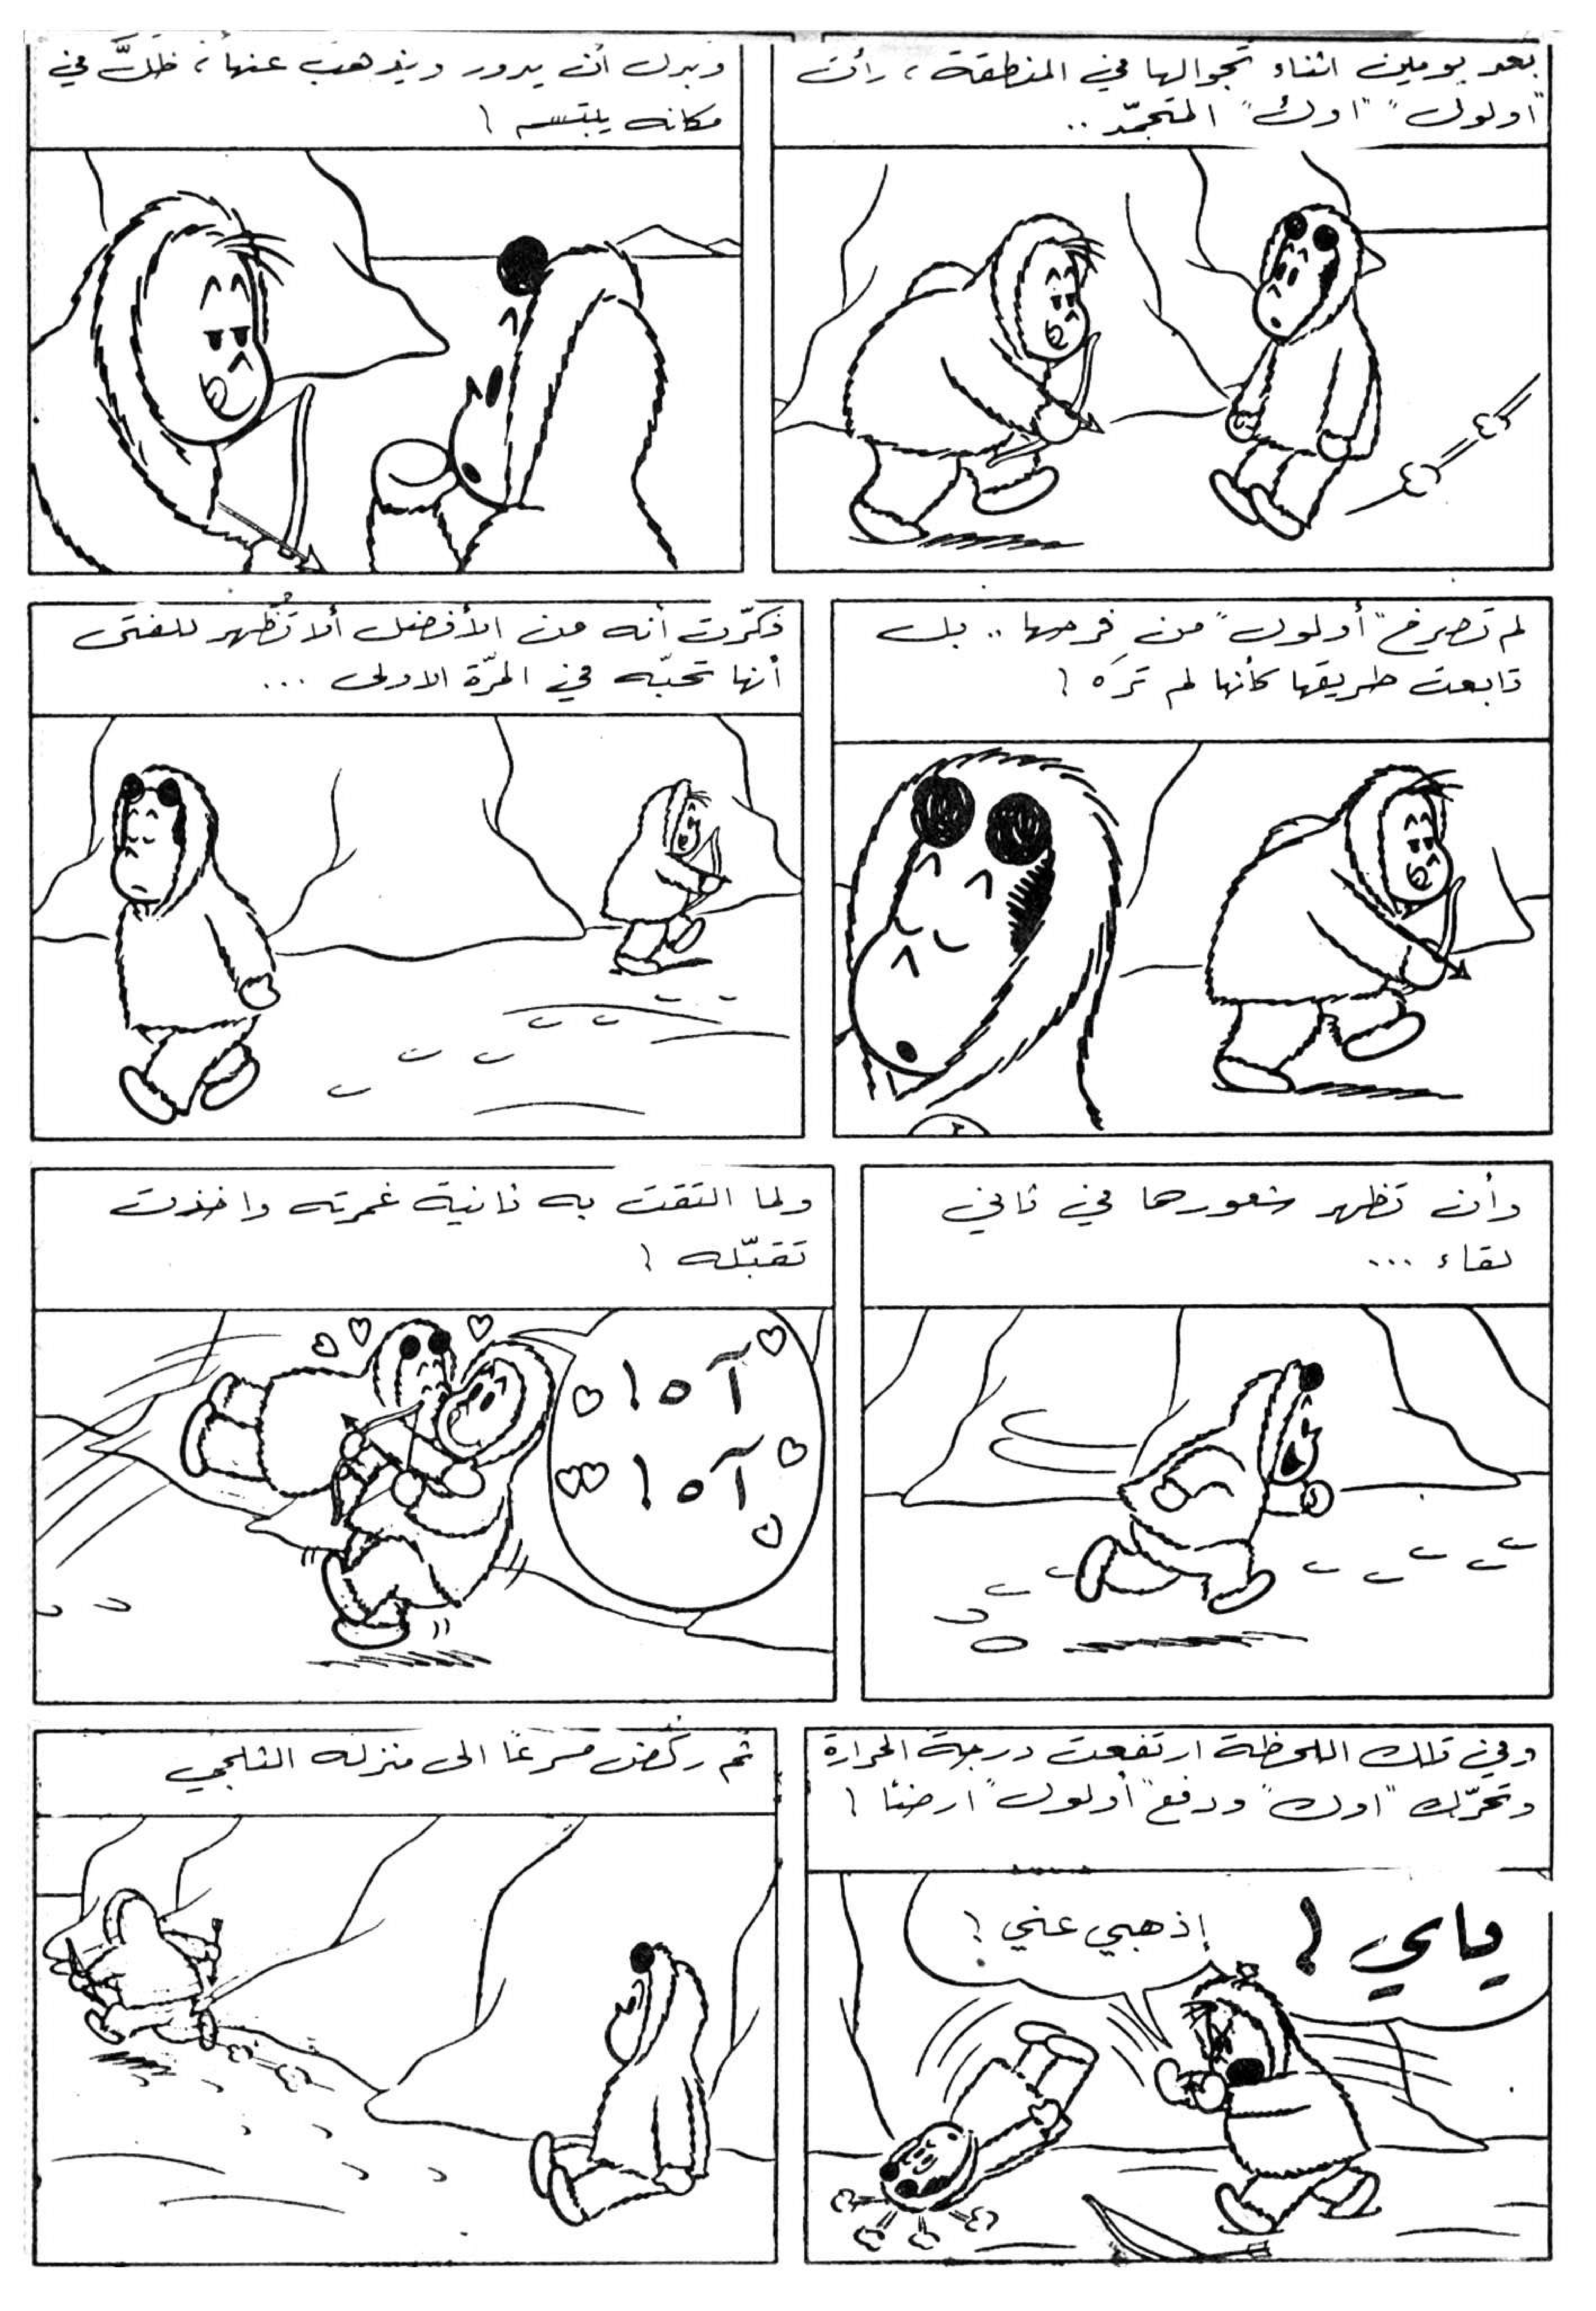 بعد يومين اثناء تجوالها في المنطقة، رأت
"أولول" "اوك" المتجمّد..
وبدل أن يدور ويذهب عنها، ظلَّ في
مكانه يبتسم !
لم تصرخ "أولول" من فرحها .. بل
تابعت طريقها كأنها لم تَرَه !
فكرّت أنه من الأفضل ألا تُظهر للفتى
أنها تحبّه في المرّة الاولى ...
وأن تظهر شعورها في ثاني
لقاء ...
ولما التقت به ثانية غمرته واخذت
تقبّله !
آه !
آه !
وفي تلك اللحظة ارتفعت درجة الحرارة
وتحرّك "اوك" ودفع "أولول" ارضًا !
ياي !
إذهبي عني !
ثم ركض مسرعًا الى منزله الثلجي